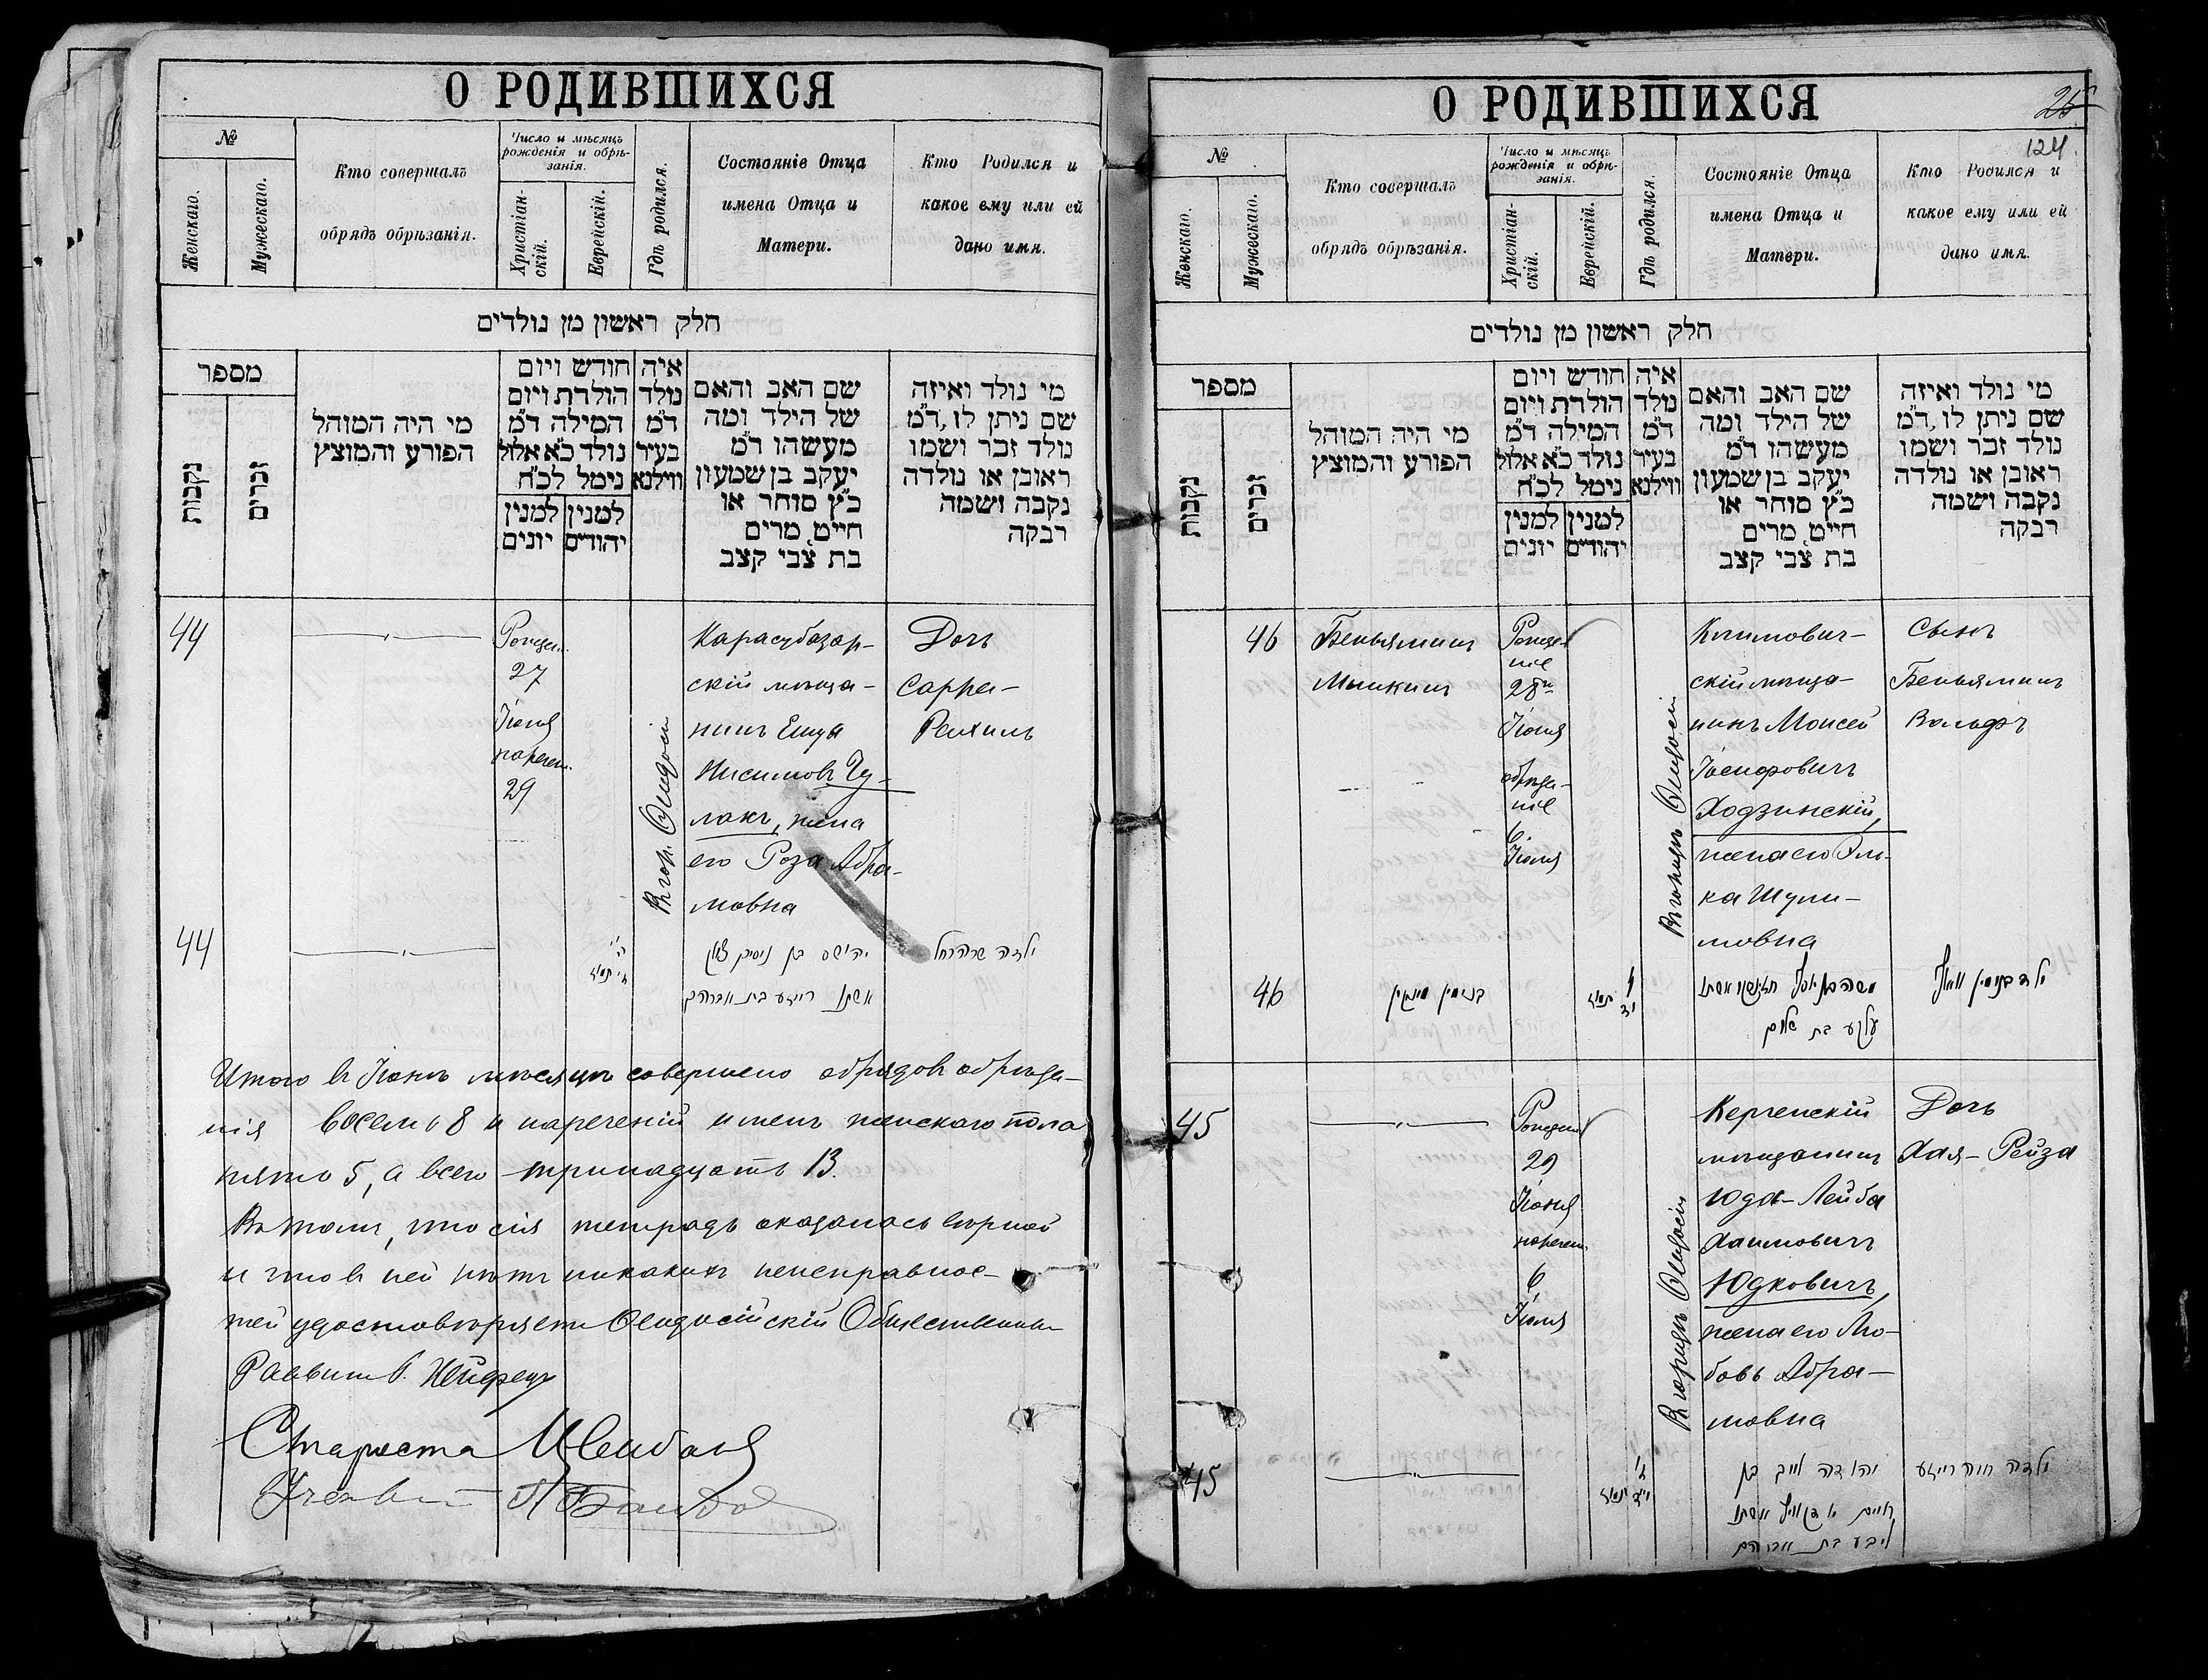 О РОДИВШИХСЯ
№
Женскаго.
Мужескаго.
Кто совершалъ
обрядъ обрѣзанія.
Число и мѣсяцъ
рожденія и обрѣ-
занія.
Христіан-
скій.
Еврейскій.
Гдѣ родился.
Состояніе Отца
имена Отца и
Матери.
Кто Родился и
какое ему или ей
дано имя.
חלק ראשון מן נולדים
מספר
נקבות
זכרים
מי היה המוהל
הפורע והמוצץ
חודש ויום
הולדת ויום
המילה ד״מ
נולד כ״א אלול
נימל לכ״ח
למנין
יונים
למנין
יהודים
איה
נולד
ד״מ
בעיר
ווילנא
שם האב והאם
של הילד ומה
מעשהו ד״מ
יעקב בן שמעון
כ״ץ סוחר או
חייט, מרים
בת צבי קצב
מי נולד ואיזה
שם ניתן לו, ד״מ
נולד זכר ושמו
ראובן או נולדה
נקבה ושמה
רבקה
44
Рожден.
27
Іюня
наречен.
29
В гор. Ѳеодосіи
Карасубазар-
скій мѣща-
нинъ Ешуа
Нисимовъ Чу-
лакъ, жена
его Роза Абра-
мовна
Дочь
Сарра-
Рахиль
44
אשתו רייזע בת אברהם
Итого въ Іюнѣ мѣсяцѣ совершено обрядовъ обрѣза-
нія восемь 8 и нареченій именъ женскаго пола
пять 5, а всего тринадцать 13.
Въ томъ, что сія тетрадь оказалась вѣрной
и что въ ней нѣтъ никакихъ неисправнос-
тей удостовѣряетъ Ѳеодосійскій Общественный
Раввинъ
Староста
О РОДИВШИХСЯ
25
124
№
Женскаго.
Мужескаго.
Кто совершалъ
обрядъ обрѣзанія.
Число и мѣсяцъ
рожденія и обрѣ-
занія.
Христіан-
скій.
Еврейскій.
Гдѣ родился.
Состояніе Отца
имена Отца и
Матери.
Кто Родился и
какое ему или ей
дано имя.
חלק ראשון מן נולדים
מספר
נקבות
זכרים
מי היה המוהל
הפורע והמוצץ
חודש ויום
הולדת ויום
המילה ד״מ
נולד כ״א אלול
נימל לכ״ח
למנין
יונים
למנין
יהודים
איה
נולד
ד״מ
בעיר
ווילנא
שם האב והאם
של הילד ומה
מעשהו ד״מ
יעקב בן שמעון
כ״ץ סוחר או
חייט, מרים
בת צבי קצב
מי נולד ואיזה
שם ניתן לו, ד״מ
נולד זכר ושמו
ראובן או נולדה
נקבה ושמה
רבקה
46
Беньяминъ
Мышкинъ
Рожде
ніе
28
Іюня
обрѣза-
ніе
6
Іюля
Въ городѣ Ѳеодосіи
Климович-
скій мѣща-
нинъ Моисей
Іосифовичъ
Ходзинскій,
жена его Эль-
ка Шули-
мовна
Сынъ
Беньяминъ
Вольфъ
46
45
29
Іюня
наречен.
6
Іюля
Въ городѣ Ѳеодосіи
Керченскій
мѣщанинъ
Юда-Лейба
Хаимовичъ
Юдковичъ,
жена его Лю-
бовь Абра-
мовна
Дочь
Хая-Рейза
45
יהודה לייב בן
ילדה חיה רייזע
ליבע בת אברהם